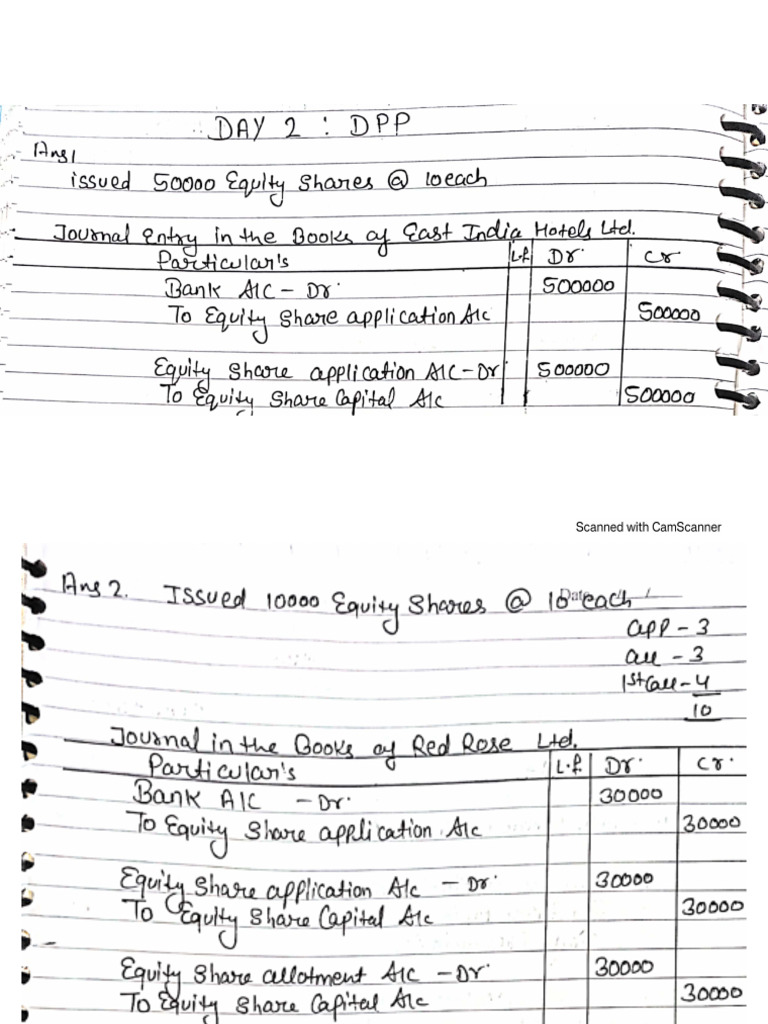 DAY 2 : DPP
Ans 1
issued 50000 Equity Shares @ 10 each
Journal Entry in the Books of East India Hotels Ltd.
Particular's L.f. Dr. Cr
Bank A/C - Dr. 500000
To Equity Share application A/c 500000
Equity Share application A/C - Dr 500000
To Equity Share Capital A/c 500000
Scanned with CamScanner
Ans 2. Issued 10000 Equity Shares @ 10 each
app - 3
all - 3
1st Call - 4
10
Journal in the Books of Red Rose Ltd.
Particular's L.f. Dr. Cr.
Bank A/C - Dr. 30000
To Equity Share application A/c 30000
Equity Share application A/c - Dr. 30000
To Equity Share Capital A/c 30000
Equity Share allotment A/c - Dr. 30000
To Equity Share Capital A/c 30000